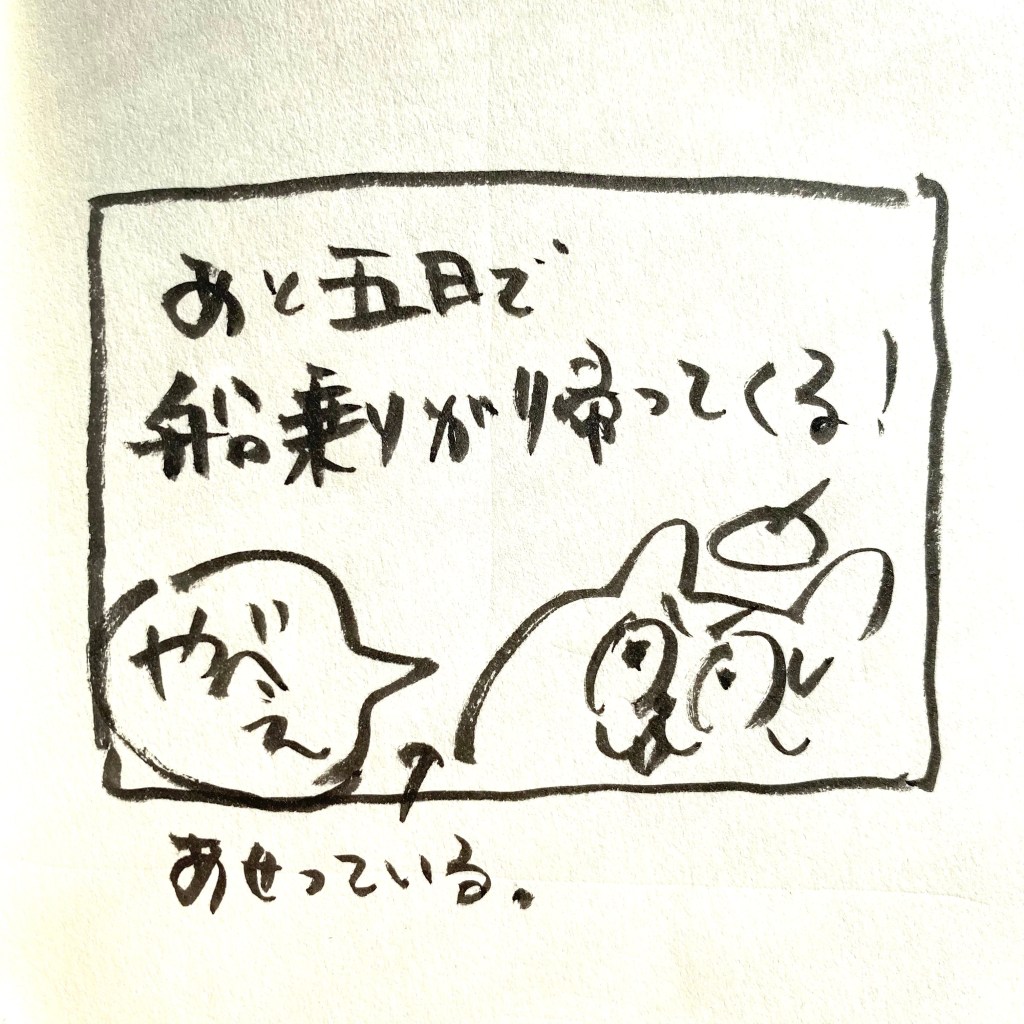 あと五日で
船乗りが帰ってくる!
やべえ
あせっている。